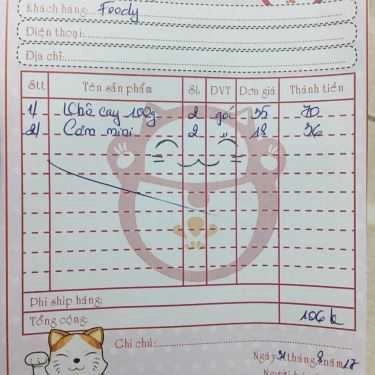 Khách hàng: Foody
Điện thoại:
Địa chỉ:
Stt Tên sản phẩm SL ĐVT Đơn giá Thành tiền
1/ Khô cay 100g 2 gói 35 70
2/ Cơm mini 2 " 18 36
Phí ship hàng:
Tổng cộng: 106k
Ghi chú:
Ngày 31 tháng 8 năm 17
Người